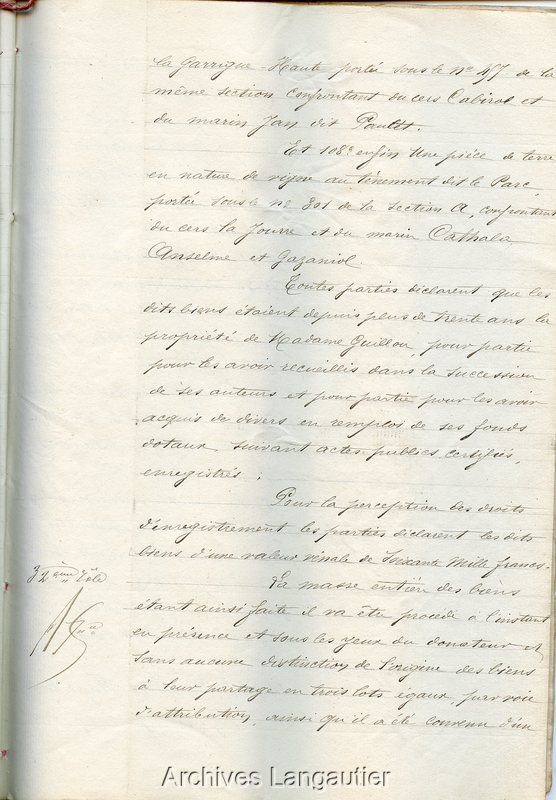 la Garrigue-Haute portée sous le nº 457 de la
même section confrontant du cers Cabirol et
du marin Jan dit Paulet.
Et 108º enfin Une pièce de terre
en nature de vigne au tènement dit le Parc,
portée sous le nº 301 de la section A, confrontant
du cers la Jourre et du marin Cathala
Anselme et Gazaniol
Toutes parties déclarent que les
dits biens étaient depuis plus de trente ans la
propriété de Madame Guillou, pour partie
pour les avoir recueillis dans la succession
de ses auteurs et pour partie pour les avoir
acquis de divers en remplois de ses fonds
dotaux suivant actes publics certifiés,
enregistrés ;
Pour la perception des droits
d'enregistrement les parties déclarent les dits
biens d'une valeur vénale de Soixante Mille francs.
La masse entière des biens
étant ainsi faite il va être procédé à l'instant
en présence et sous les yeux du donateur et
sans aucune distinction de l'origine des biens
à leur partage en trois lots égaux, par voie
d'attribution, ainsi qu'il a été convenu d'un
32ème Rôle
Archives Langautier